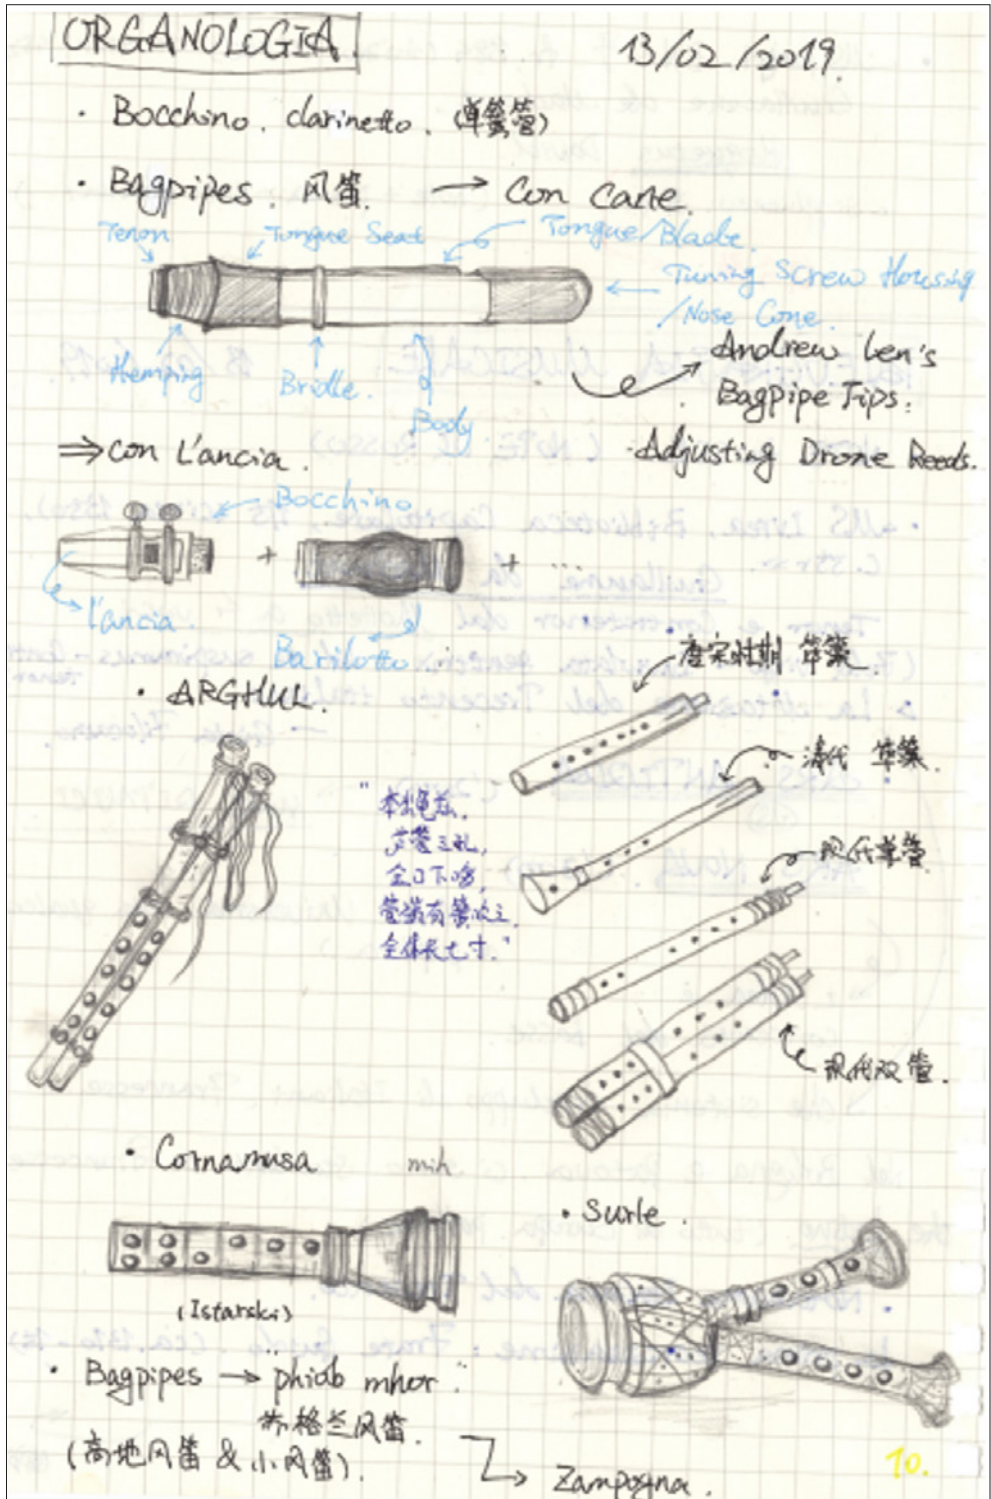 ORGANOLOGIA
13/02/2019.
· Bocchino. clarinetto. (单簧管)
· Bagpipes. 风笛. → Con Cane.
Tenon
Tongue Seat
Tongue/Blade.
Tuning Screw Housing
/Nose Cone.
Hemping
Bridle.
Body
Andrew Len's
Bagpipe Tips:
·Adjusting Drone Reeds.
⇒ con L'ancia.
Bocchino
+
+ ...
l'ancia.
Barilotto
· ARGHUL.
唐宋时期 筚篥.
清代 筚篥.
"本出龟兹,
全体长七寸."
现代单管.
现代双管.
· Cornamusa
mih
(Istarski)
· Surle.
· Bagpipes → phiob mhor.
苏格兰风笛.
(高地风笛 & 小风笛).
Zampogna.
10.